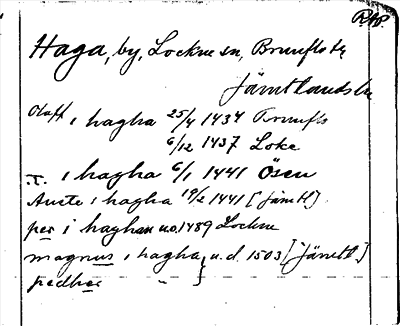 R.HP.
Haga, by, Lockne sn, Brunflo tg
Jämtlands ln
Olaff i hagha 25/4 1434 Brunflo
6/12 1437 Loke
i hagha 6/1 1441 Ösen
i hagha 19/2 1441 [Jämtl]
per i haghan u.o. 1489 Lockne
magnus i hagha } u.d. 1503 [Jämtl.]
pedher  "